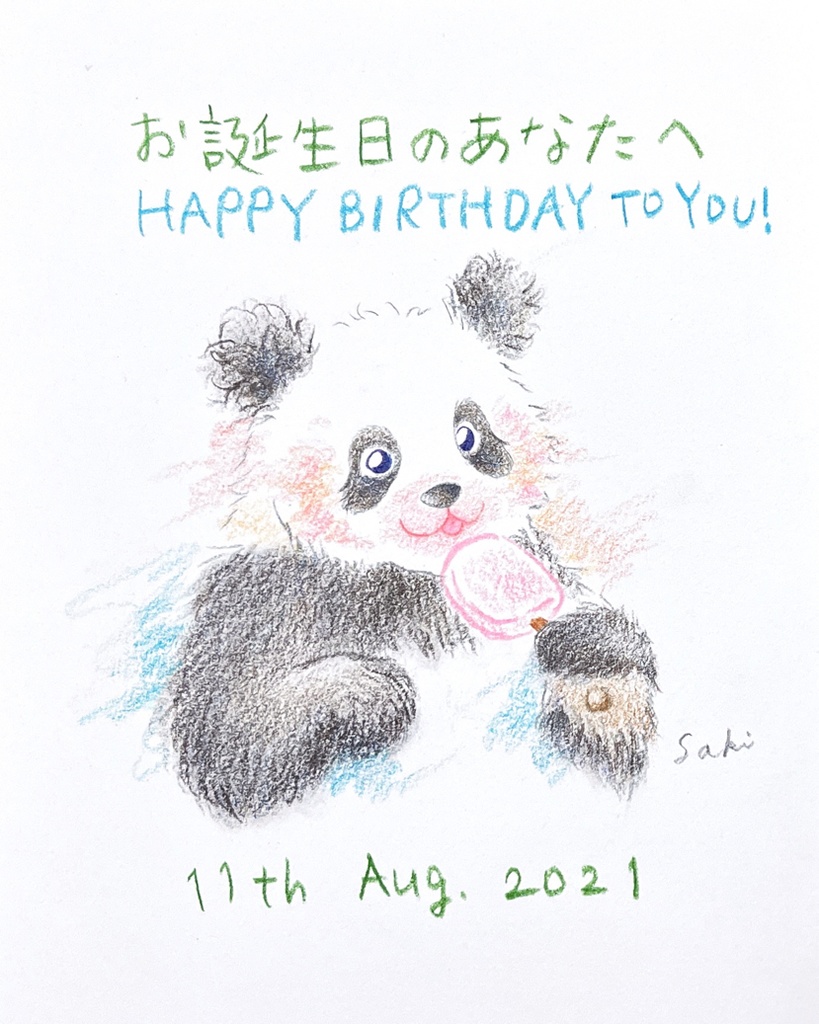 お誕生日のあなたへ
HAPPY BIRTHDAY TO YOU!
Saki
11th Aug. 2021